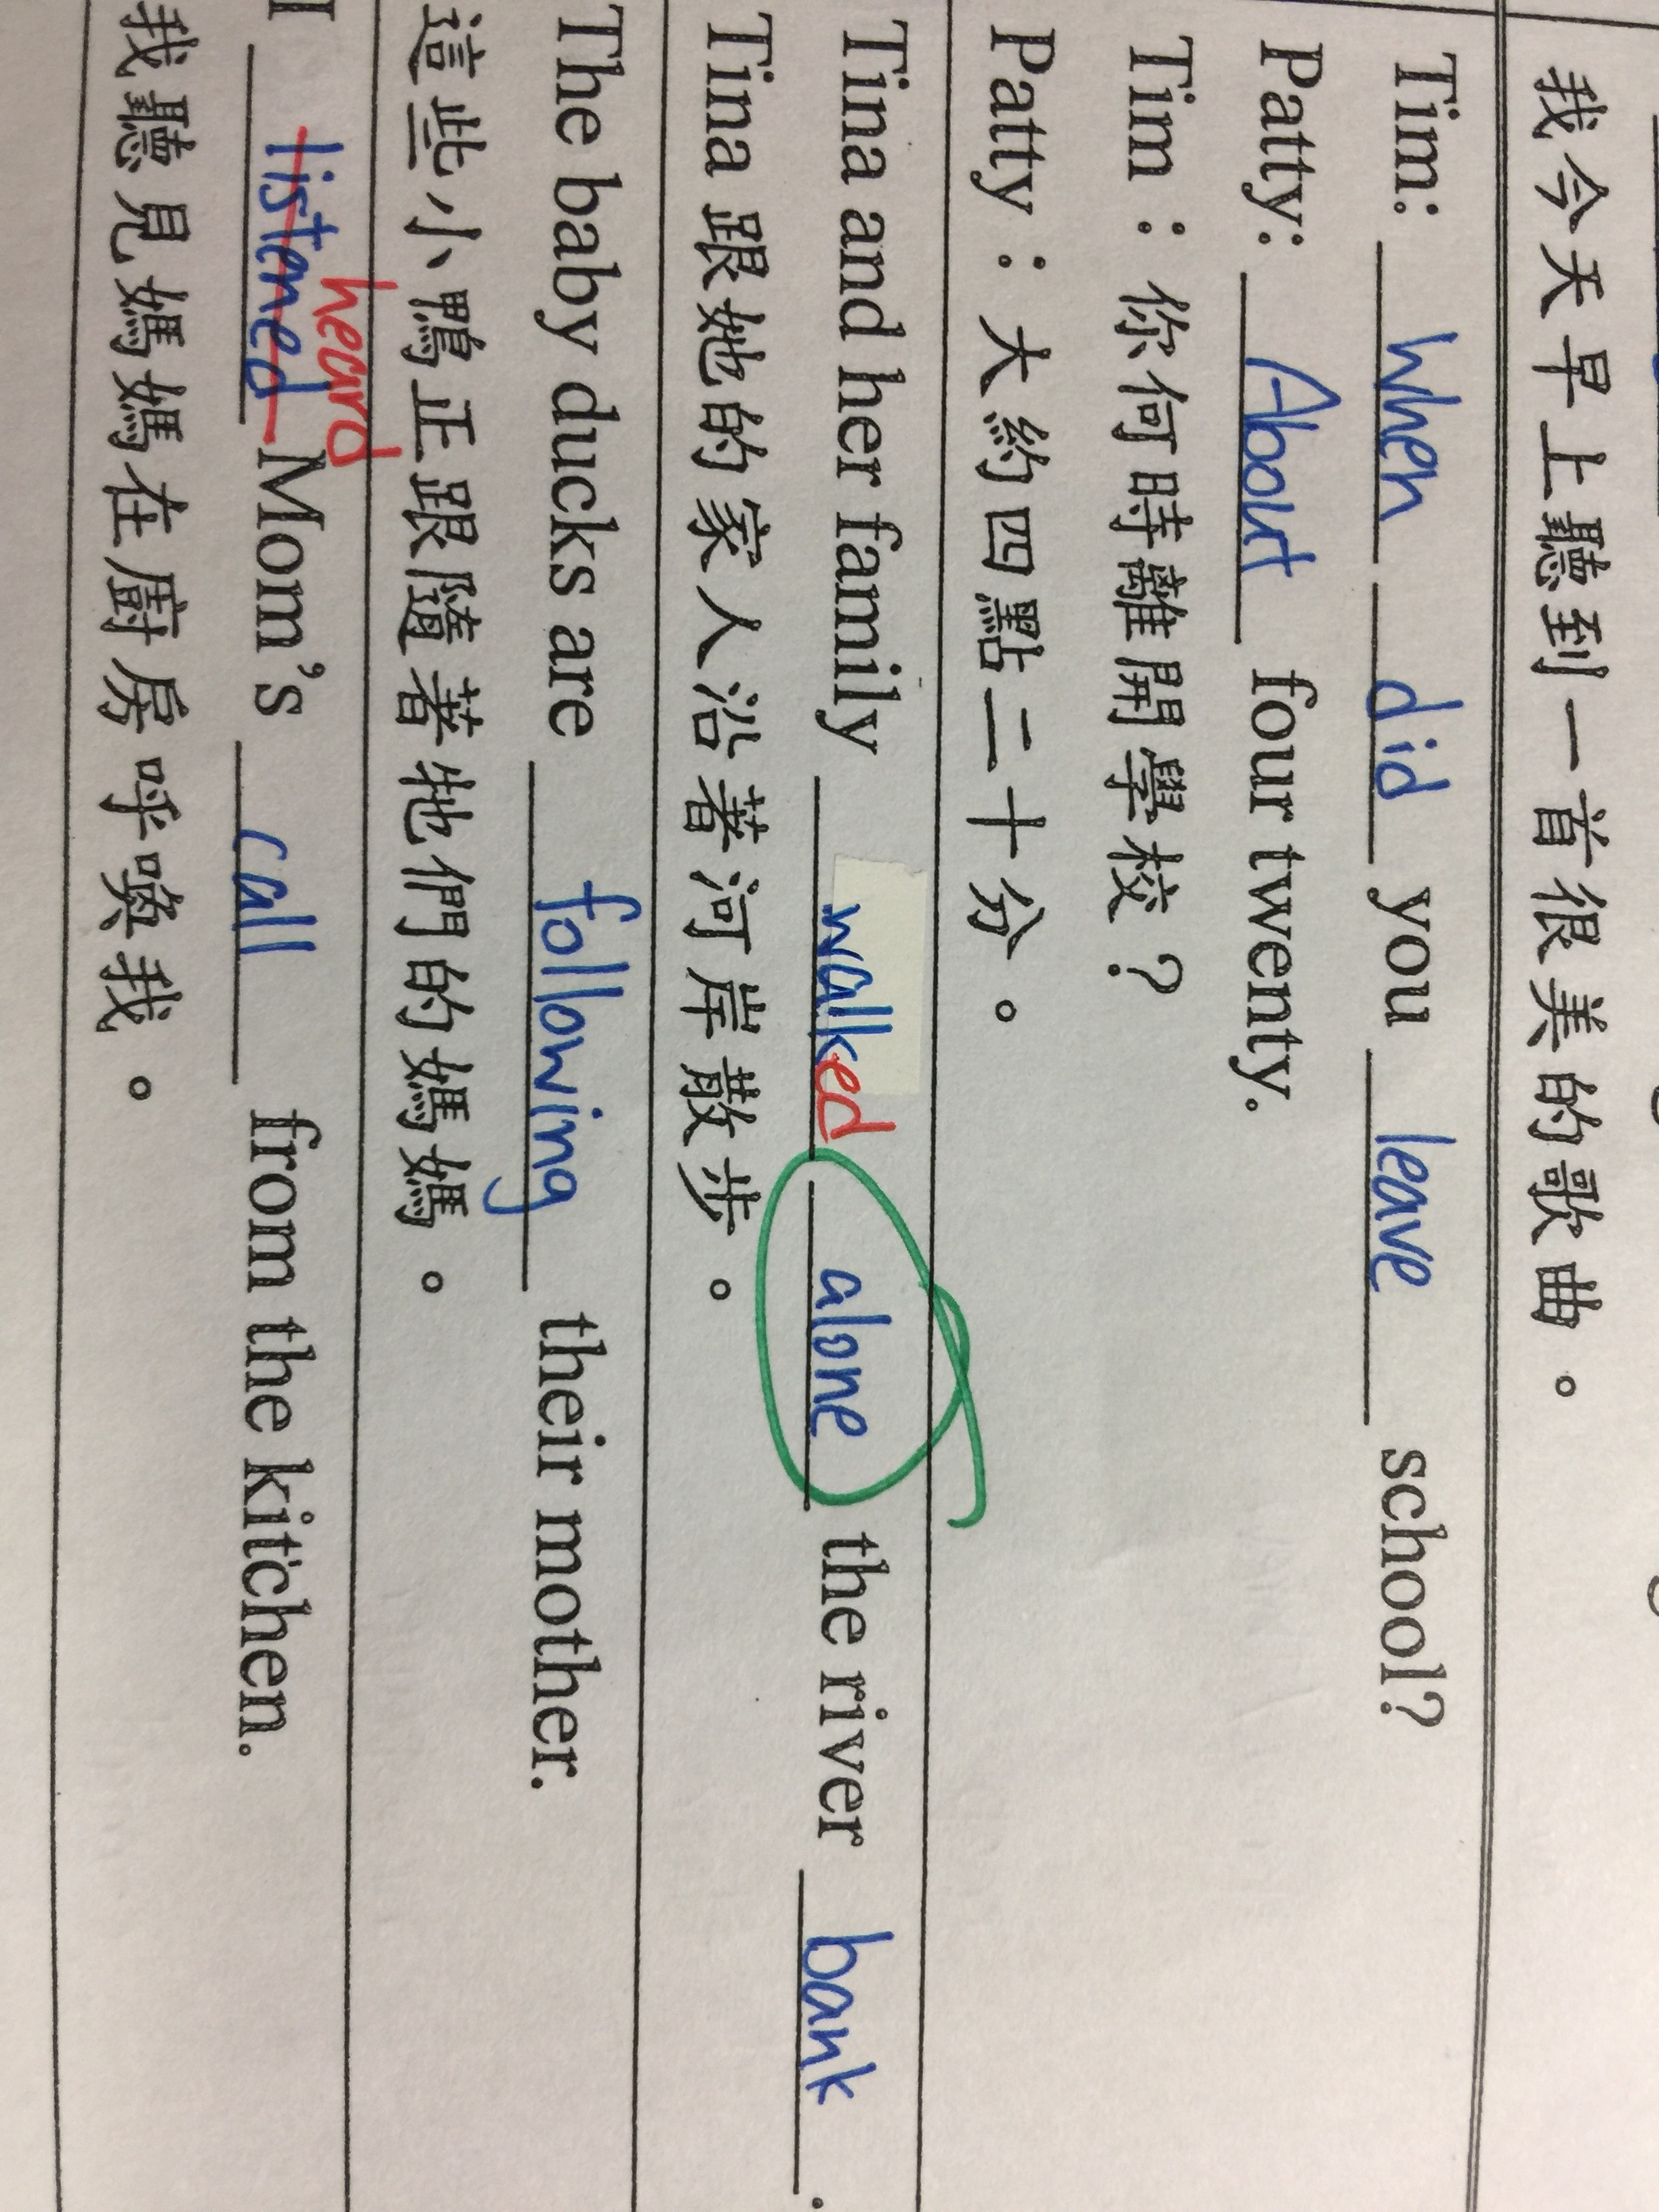 我今天早上聽到一首很美的歌曲。
Tim: When did you leave school?
Patty: About four twenty.
Tim：你何時離開學校？
Patty：大約四點二十分。
Tina and her family walked alone the river bank.
Tina 跟她的家人沿著河岸散步。
The baby ducks are following their mother.
這些小鴨正跟隨著牠們的媽媽。
heard
I listened Mom's call from the kitchen.
我聽見媽媽在廚房呼喚我。